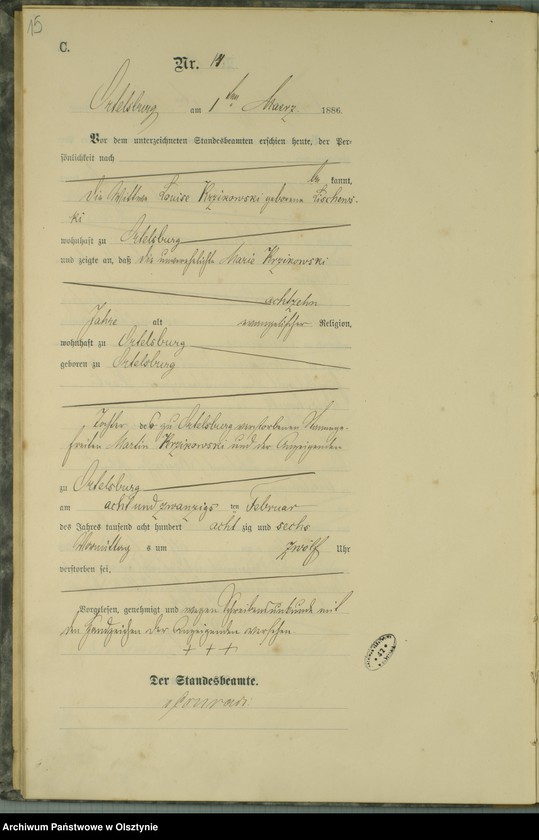 15
C.
Nr. 14
Ortelsburg am 1ten Maerz 1886.
Vor dem unterzeichneten Standesbeamten erschien heute, der Per-
sönlichkeit nach
be kannt,
die Wittwe Louise Krzikowski geborene
ki
wohnhaft zu Ortelsburg
und zeigte an, daß die unverehelichte Marie Krzikowski
achtzehn
Jahre alt evangelischer Religion,
wohnhaft zu Ortelsburg
geboren zu Ortelsburg
Tochter des zu Ortelsburg verstorbenen
Martin Krzikowski und der Anzeigenden
zu Ortelsburg
am acht und zwanzigs ten Februar
des Jahres tausend acht hundert acht zig und sechs
Vormittag s um zwölf Uhr
verstorben sei.
Vorgelesen, genehmigt und wegen Schreibensunkunde mit
den Handzeichen der Anzeigenden versehen.
+ + +
Der Standesbeamte.
Archiwum Państwowe w Olsztynie